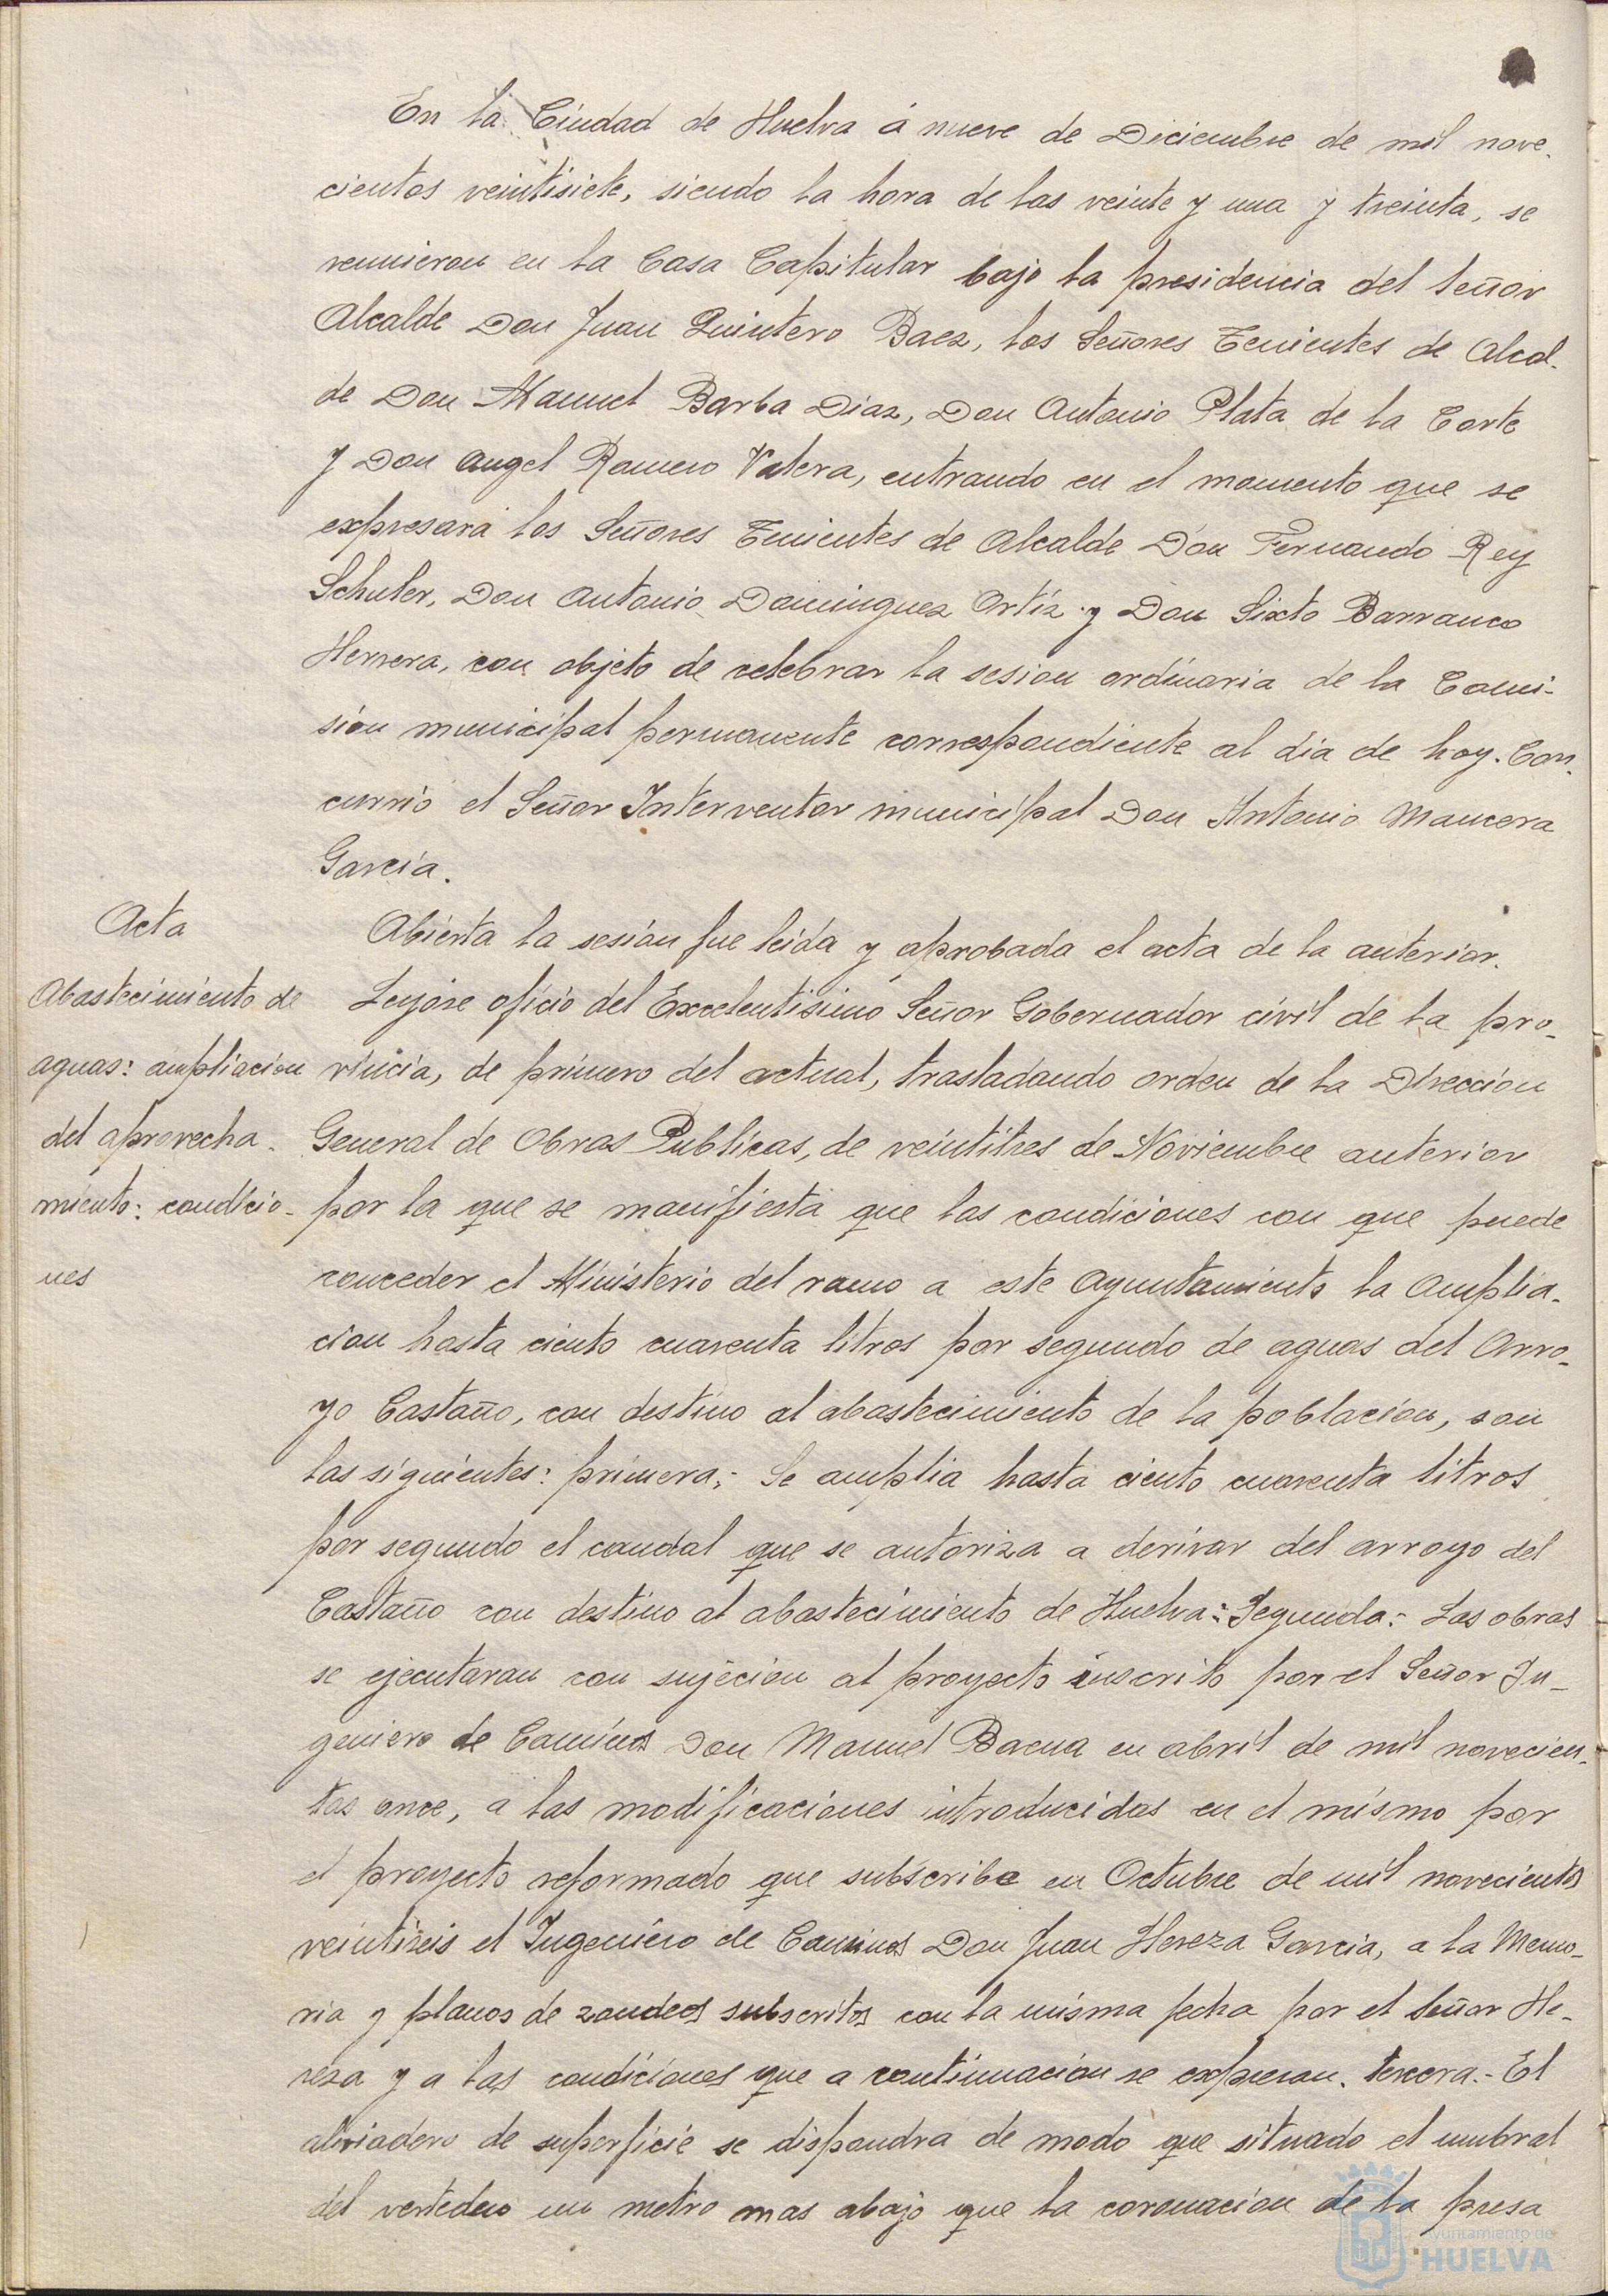 En la Ciudad de Huelva á nueve de Diciembre de mil nove-
cientos veintisiete, siendo la hora de las veinte y una y treinta, se
reunieron en la Casa Capitular bajo la presidencia del Señor
Alcalde Don Juan Quintero Baez, los Señores Tenientes de Alcal-
de Don Manuel Barba Diaz, Don Antonio Plata de la Corte
y Don Angel Romero Valera, entrando en el momento que se
expresará los Señores Tenientes de Alcalde Don Fernando Rey
Schuler, Don Antonio Dominguez Ortíz y Don Sixto Barranco
Herrera, con objeto de celebrar la sesion ordinaria de la Comi-
sión municipal permanente correspondiente al dia de hoy. Con-
currió el Señor Interventor municipal Don Antonio Mancera
García.
Acta
Abierta la sesión fue leida y aprobada el acta de la anterior.
Abastecimiento de
aguas: ampliacion
del aprovecha-
miento: condicio-
nes
Leyóse oficio del Excelentisimo Señor Gobernador civil de la pro-
vincia, de primero del actual, trasladando orden de la Direccion
General de Obras Publicas, de veintitres de Noviembre anterior
por la que se manifiesta que las condiciones con que puede
conceder el Ministerio del ramo a este Ayuntamiento la Amplia-
cion hasta ciento cuarenta litros por segundo de aguas del Arro-
yo Castaño, con destino al abastecimiento de la poblacion, son
las siguientes: primera:- Se amplia hasta ciento cuarenta litros
por segundo el caudal que se autoriza a derivar del arroyo del
Castaño con destino al abastecimiento de Huelva:- Segunda:- Las obras
se ejecutaran con sujecion al proyecto inscrito por el Señor In-
geniero de Caminos Don Manuel Baena en abril de mil novecien-
tos once, a las modificaciones introducidas en el mismo por
el proyecto reformado que subscribe en Octubre de mil novecientos
veintiseis el Ingeniero de Caminos Don Juan Hereza Garcia, a la Memo-
ria y planos de zondeos subscritos con la misma fecha por el Señor He-
reza y a las condiciones que a continuacion se expresan. tercera.- El
aliviadero de superficie se dispondra de modo que situado el umbral
del vertedero un metro mas abajo que la coronacion de la presa
Ayuntamiento de
HUELVA